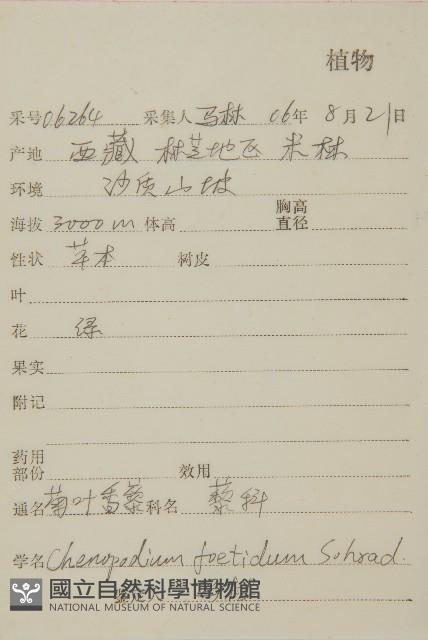 植物
采号 06264 采集人 马林 06年 8月21日
产地 西藏 林芝地区 米林
环境 沙质山坡
海拔 3000m 体高 胸高直径
性状 草本 树皮
叶
花 绿
果实
附记
药用部份 效用
通名 菊叶香藜 科名 藜科
学名 Chenopodium foetidum Schrad.
國立自然科學博物館
NATIONAL MUSEUM OF NATURAL SCIENCE